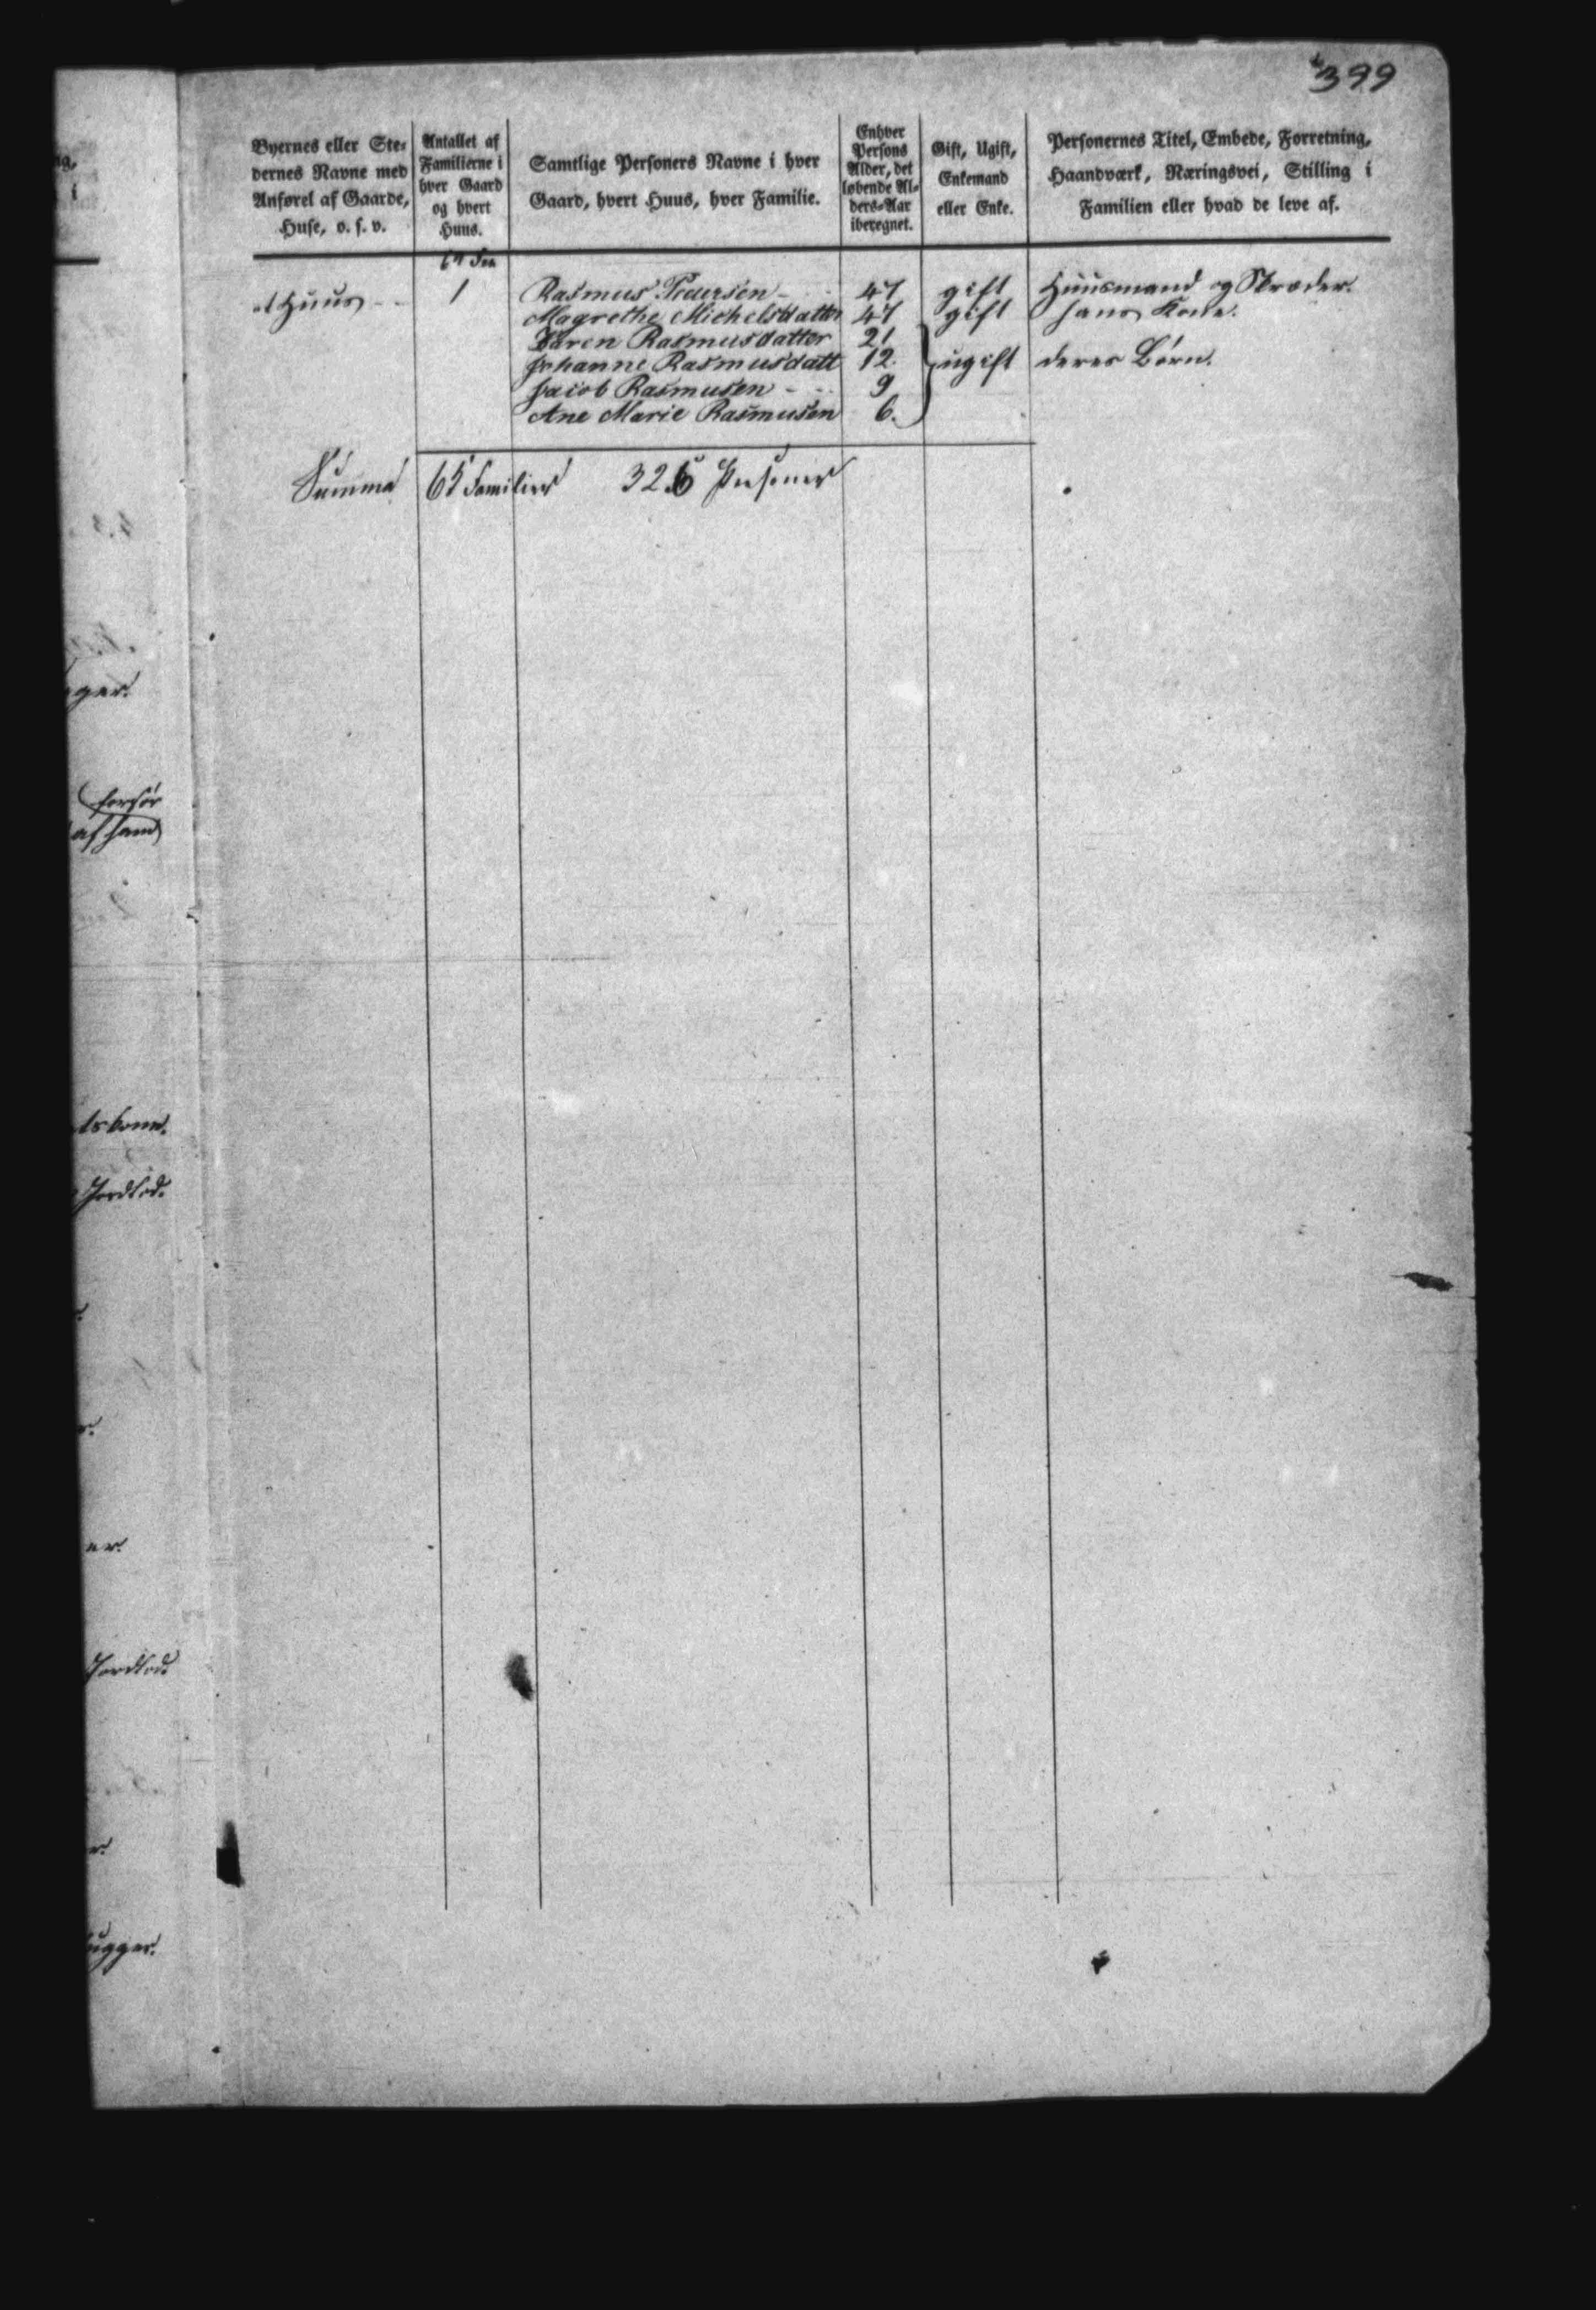 399
Byernes eller Ste-
dernes Navne med
Anførel af Gaarde,
Huse, o. s. v.
Antallet af
Familierne i
hver Gaard
og hvert
Huus.
Samtlige Personers Navne i hver
Gaard, hvert Huus, hver Familie.
Enhver
Persons
Alder, det
løbende Al-
ders-Aar
iberegnet.
Gift, Ugift,
Enkemand
eller Enke.
Personernes Titel, Embede, Forretning,
Haandværk, Næringsvei, Stilling i
Familien eller hvad de leve af.
Huus - - 1 Rasmus Pedersen - 47 gift Huusmand og Skræder.
Magrethe Michelsdatter 47 gift hans Kone.
Karen Rasmusdatter 21
Johanne Rasmusdatt 12. ugift deres Børn.
Jacob Rasmusen - 9
Ane Marie Rasmusen 6.
Summa 65 Familier 326 Personer
forsør
af ham
Jordlod.
Jordlod.